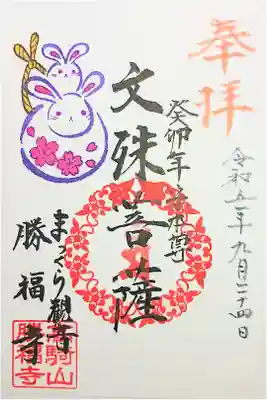 奉拝
令和五年九月二十四日
癸卯年守本尊
文殊菩薩
まくら観音
勝福寺
勝福寺